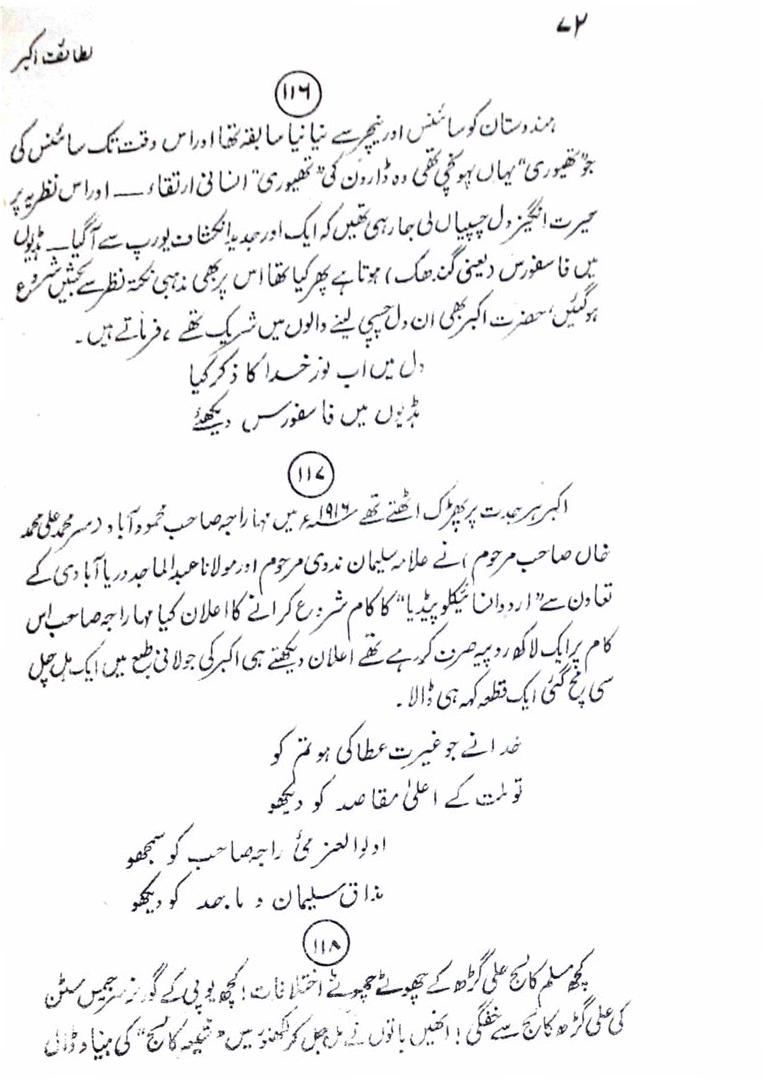 ۷۲
لطائف اکبر
۱۱۶
ہندوستان کو سائنس اور نیچر سے نیا نیا سابقہ تھا اور اس وقت تک سائنس کی
جو ”تھیوری“ یہاں پہونچی تھی وہ ڈارون کی ”تھیوری“ انسانی ارتقاء — اور اس نظریہ پر
حیرت انگیز دل چسپیاں لی جا رہی تھیں کہ ایک اور جدید انکشاف یورپ سے آگیا — ہڈیوں
میں فاسفورس (یعنی گندھک) ہوتا ہے پھر کیا تھا اس پر بھی مذہبی نکتہ نظر سے بحثیں شروع
ہوگئیں، حضرت اکبر بھی ان دل چسپی لینے والوں میں شریک تھے، فرماتے ہیں۔
دل میں اب نور خدا کا ذکر گیا
ہڈیوں میں فاسفورس دیکھئے
۱۱۷
اکبر ہر جدت پر پھڑک اٹھتے تھے ۱۹۱۶ء میں مہاراجہ صاحب محمود آباد (سر محمد علی محمد
خاں صاحب مرحوم) نے علامہ سلیمان ندوی مرحوم اور مولانا عبدالماجد دریا آبادی کے
تعاون سے ”اردو انسائیکلو پیڈیا“ کا کام شروع کرانے کا اعلان کیا مہاراجہ صاحب اس
کام پر ایک لاکھ روپیہ صرف کر رہے تھے اعلان دیکھتے ہی اکبر کی جولانی طبع میں ایک ہل چل
سی مچ گئی ایک قطعہ کہہ ہی ڈالا۔
خدا نے جو غیرت عطا کی ہو تم کو
تو ملت کے اعلیٰ مقاصد کو دیکھو
اولوالعزمئ راجہ صاحب کو سمجھو
مذاق سلیمان و ماجد کو دیکھو
۱۱۸
کچھ مسلم کالج علی گڑھ کے چھوٹے چھوٹے اختلافات! کچھ یوپی کے گورنر سر جیمس مسٹن
کی علی گڑھ کالج سے خفگی! انھیں باتوں نے مل جل کر لکھنؤ میں ”شیعہ کالج“ کی بنیاد ڈالی